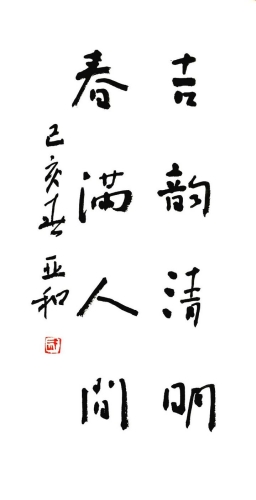 吉韵清明
春满人間
己亥春 亚和